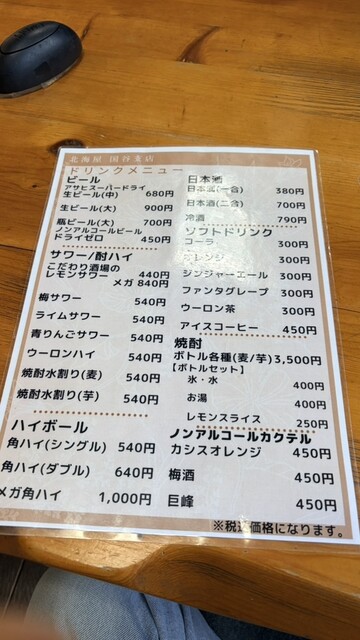 北海屋 国谷支店
ドリンクメニュー
ビール
アサヒスーパードライ
生ビール(中) 680円
生ビール(大) 900円
瓶ビール(大) 700円
ノンアルコールビール
ドライゼロ 450円
サワー/酎ハイ
こだわり酒場の
レモンサワー 440円
メガ 840円
梅サワー 540円
ライムサワー 540円
青りんごサワー 540円
ウーロンハイ 540円
焼酎水割り(麦) 540円
焼酎水割り(芋) 540円
ハイボール
角ハイ(シングル) 540円
角ハイ(ダブル) 640円
メガ角ハイ 1,000円
日本酒
日本酒(一合) 380円
日本酒(二合) 700円
冷酒 790円
ソフトドリンク
コーラ 300円
オレンジ 300円
ジンジャーエール 300円
ファンタグレープ 300円
ウーロン茶 300円
アイスコーヒー 450円
焼酎
ボトル各種(麦/芋) 3,500円
【ボトルセット】
氷・水 400円
お湯 400円
レモンスライス 250円
ノンアルコールカクテル
カシスオレンジ 450円
梅酒 450円
巨峰 450円
※税込価格になります。